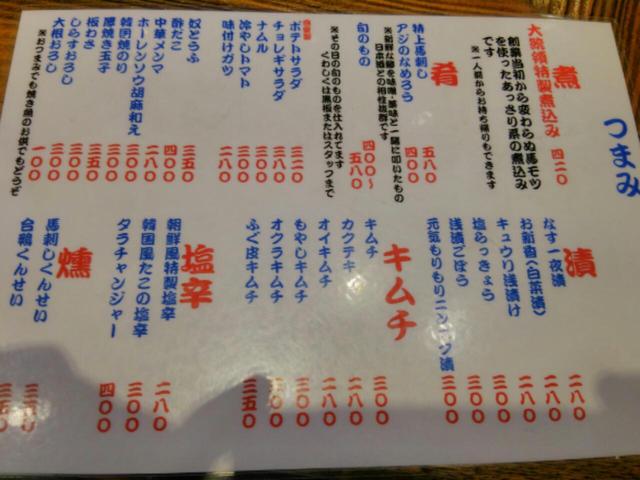 つまみ
煮
大統領特製煮込み 四二〇
創業当初から変わらぬ馬モツ
を使ったあっさり系の煮込み
です
※一人前からお持ち帰りもできます
肴
特上馬刺し 五八〇
アジのなめろう 四〇〇
※新鮮な鯵を味噌・薬味と一緒に叩いたもの
日本酒との相性抜群です
旬のもの 四〇〇〜五八〇
※その日の旬のものを仕入れてます
くわしくは黒板またはスタッフまで
ポテトサラダ 三二〇
チョレギサラダ 三八〇
ナムル 二八〇
冷やしトマト 三〇〇
味付けガツ 二八〇
奴とうふ 三五〇
酢だこ 三五〇
中華メンマ 二八〇
ホーレンソウ胡麻和え 三〇〇
韓国焼のり 三〇〇
厚焼き玉子 三〇〇
板わさ 三五〇
しらすおろし 三〇〇
大根おろし 一〇〇
※おつまみでも焼き魚のお供でもどうぞ
漬
なす一夜漬 二八〇
お新香(白菜漬) 二八〇
キュウリ浅漬け 二八〇
塩らっきょう 三〇〇
浅漬ごぼう 三〇〇
元気もりもりニンニク漬 三〇〇
キムチ
キムチ 三〇〇
カクテキ 二八〇
オイキムチ 二八〇
もやしキムチ 二八〇
オクラキムチ 三〇〇
ふく皮キムチ 三五〇
塩辛
朝鮮風特製塩辛 二八〇
韓国風たこの塩辛 三〇〇
タラチャンジャー 四〇〇
燻
馬刺しくんせい
合鴨くんせい